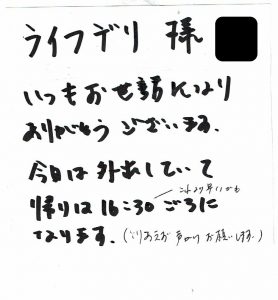 ライフデリ 様
いつもお世話になり
ありがとうございます。
今日は外出していて
これより早いかも
帰りは16:30ごろに
なります。(とりあえず 声かけ お願いします。)